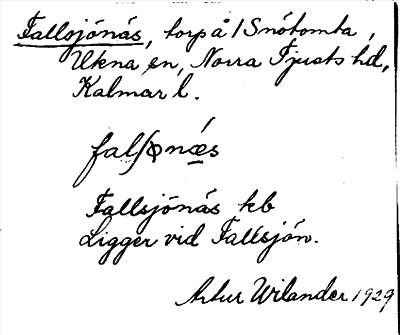 Fallsjönäs, torp å 1 Snötomta,
Ukna sn, Norra Tjusts hd,
Kalmar l.
Fallsjönäs kb
Ligger vid Fallsjön.
Artur Wilander 1929